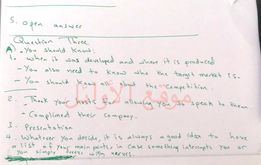 5. open answer
Question Three
A) - You should know:
1. when it was developed and when it is produced
- You also need to know who the target market is.
- You should know all about the competition.
2. - Thank your hosts for allowing you to speak to them
- Compliment their company.
3. Presentation
4. Whatever you decide, it is always a good idea to have
a list of your main points, in case something interrupts you or
you simply freeze with nerves.
موقع الأوائل